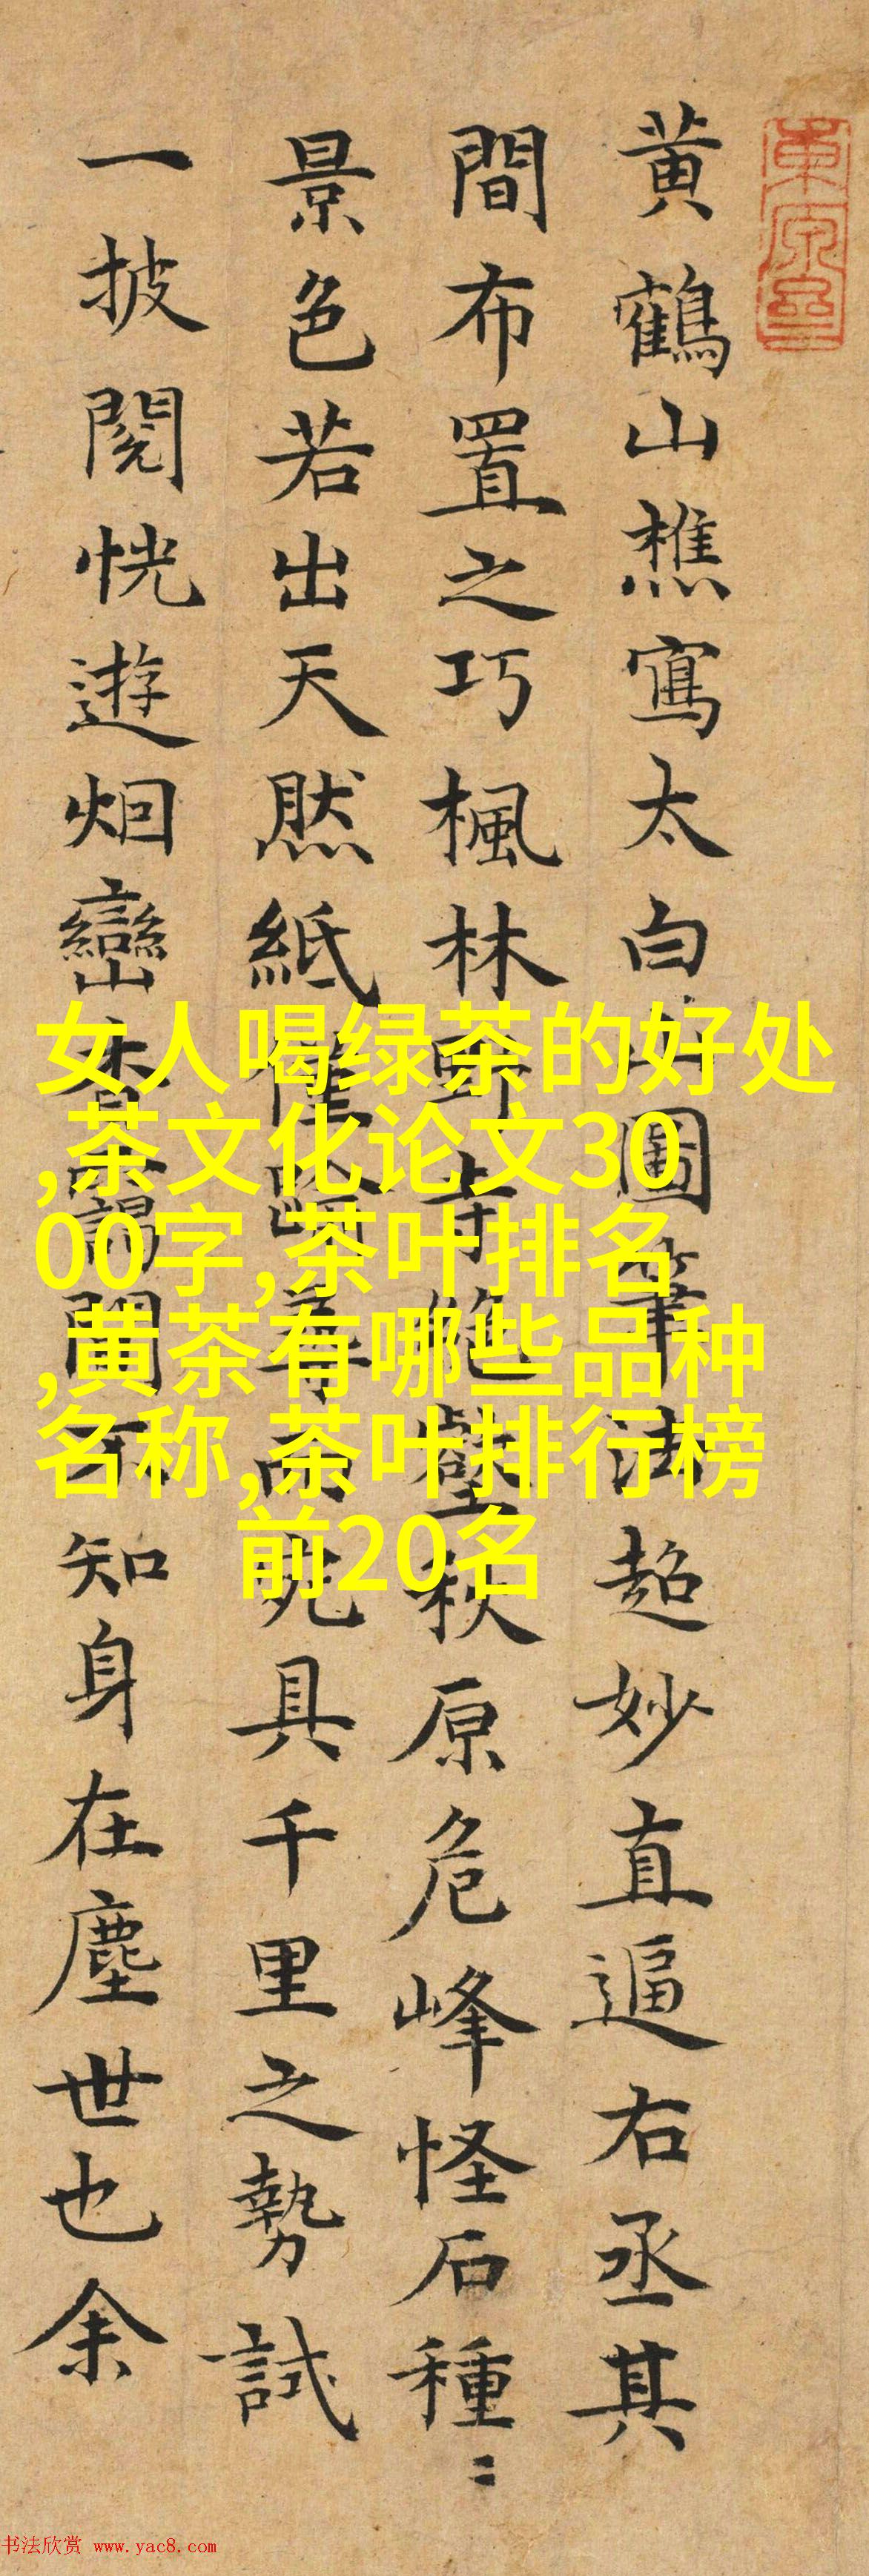 黄鶴山樵寫太白山圖筆法超妙直逼右丞其
間布置之巧楓林野寺絶壑秋原危峰怪石種〻
景色若出天然紙僅咫尋而具千里之勢試
一披閱恍遊烟巒杳靄間不知身在塵世也余
女人喝绿茶的好处
,茶文化论文30
00字,茶叶排名
,黄茶有哪些品种
名称,茶叶排行榜
前20名
书法欣赏 www.yac8.com